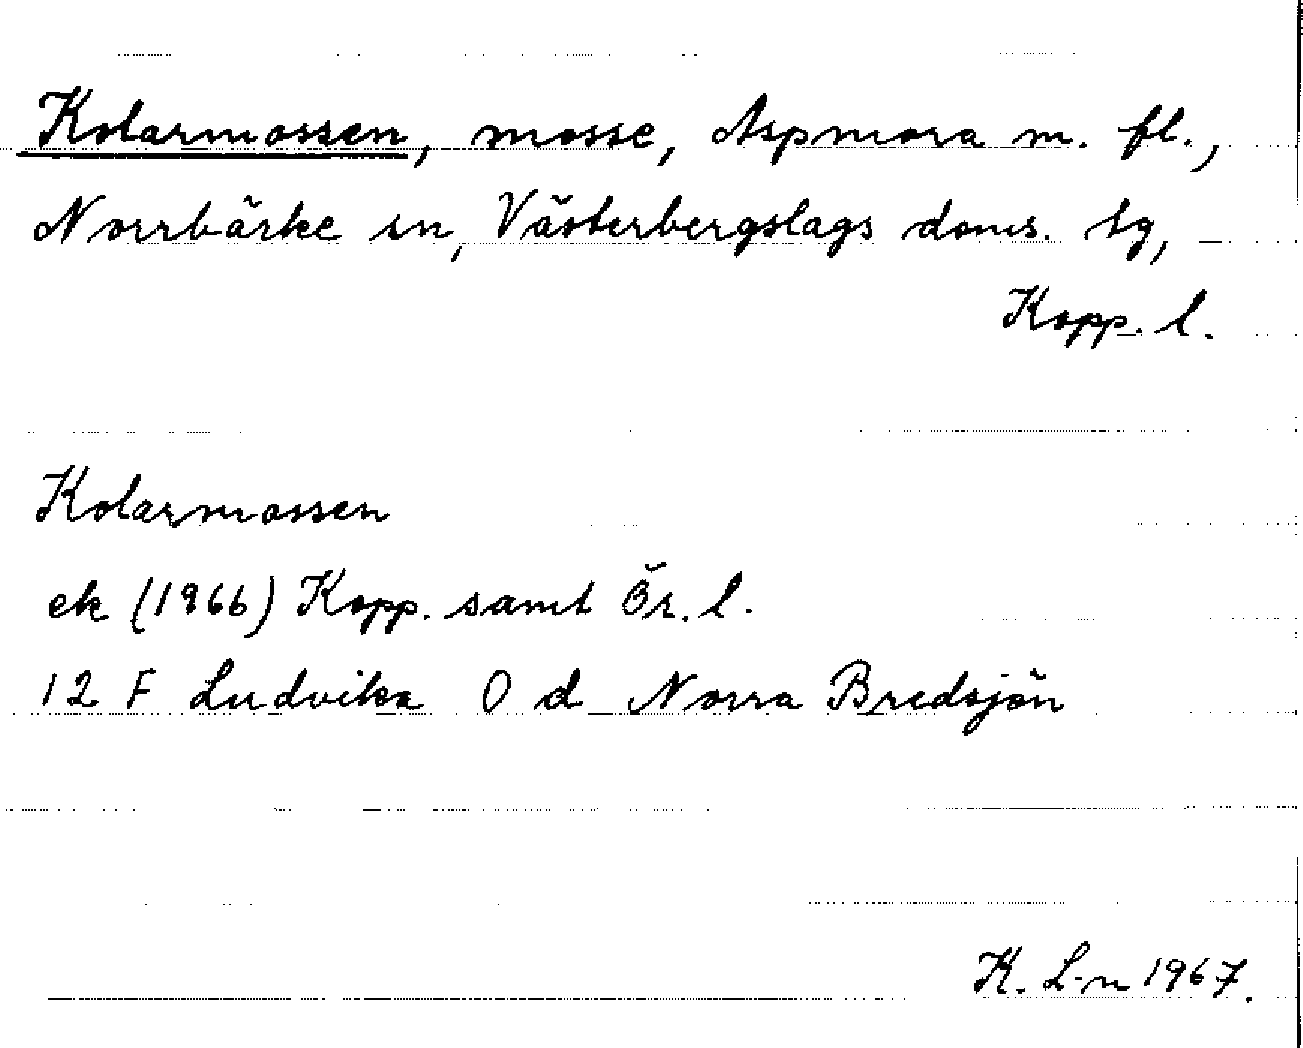 Kolarmossen, mosse, Aspmora m. fl.,
Norrbärke sn, Västerbergslags doms. tg,
Kopp. l.
Kolarmossen
ek (1966) Kopp. samt Ör. l.
12 F Ludvika 0 d Norra Bredsjön
K. L-n 1967.